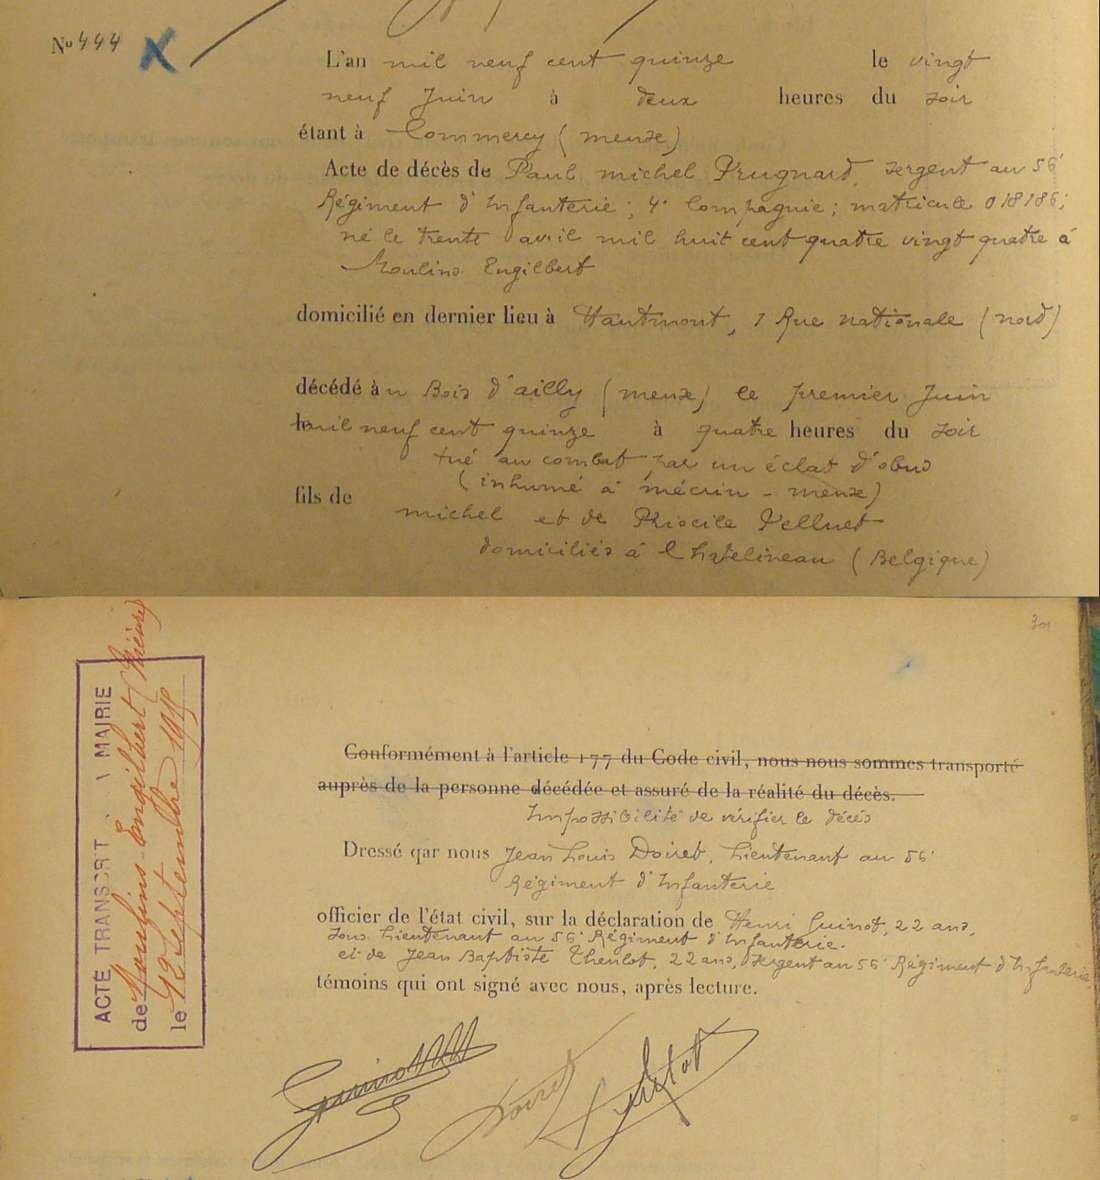 No 444
L'an mil neuf cent quinze le vingt
neuf Juin à deux heures du soir
étant à Commercy (meuse)
Acte de décès de Paul michel Prugnard, sergent au 56e
Régiment d'Infanterie; 4e Compagnie; matricule 018186;
né le trente avril mil huit cent quatre vingt quatre à
Moulins Engilbert
domicilié en dernier lieu à Hautmont, 1 Rue nationale (nord)
décédé àu Bois d'ailly (meuse) le premier Juin
mil neuf cent quinze à quatre heures du soir
tué au combat par un éclat d'obus
(inhumé à mécrin - meuse)
fils de
michel et de Velluet
domiciliés à Chatelineau (Belgique)
ACTE TRANSCRIT A MAIRIE
de Moulins-Engilbert (Nièvre)
le 12 Septembre 1915
Conformément à l'article 77 du Code civil, nous nous sommes transporté
auprès de la personne décédée et assuré de la réalité du décès.
Impossibilité de vérifier le décès
Dressé par nous Jean Louis Doiret, Lieutenant au 56e
Régiment d'Infanterie
officier de l'état civil, sur la déclaration de Henri Guinot, 22 ans,
sous Lieutenant au 56e Régiment d'Infanterie.
et de Jean Baptiste Theulot, 22 ans, sergent au 56e Régiment d'Infanterie
témoins qui ont signé avec nous, après lecture.
Guinot Doiret